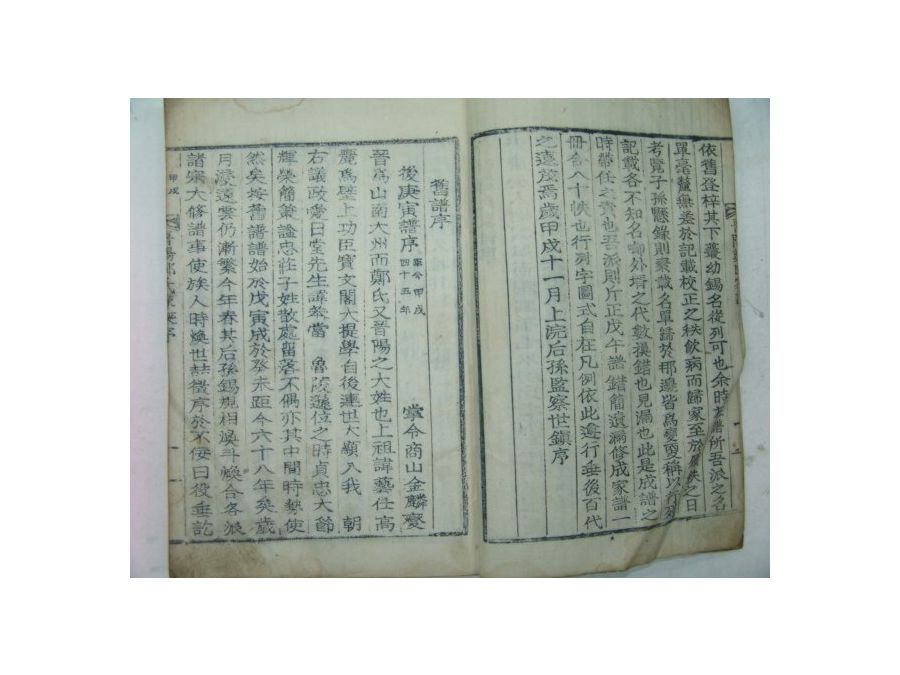 依舊登梓其下叢幼錫名從列可也余時在譜所吾派之名
單毫釐無差於記載校正之秩飲病而歸家至於秩之日
考覽子孫懸錄則聚載名單歸於那邊皆爲變稱以行列
記載各不知名啣外壻之代數摸錯也見漏也此是成譜之
時帶任之責也吾派則斤正戊午譜錯簡遺漏修成家譜一
冊合八十帙也行列字圖式自在凡例依此遵行垂後百代
之遠茂焉歲甲戌十一月上浣后孫監察世鎭序
舊譜序
後庚寅譜序 距今甲戌四十五年 掌令商山金麟燮
晉爲山南大州而鄭氏又晉陽之大姓也上祖諱藝仕高
麗爲壁上功臣寶文閣大提學自後連世大顯入我 朝
右議政愚日堂先生諱苯當 魯陵遜位之時貞忠大節
輝榮簡策謐忠莊子姓散處留落不偶亦其中間時勢使
然矣按舊譜譜始於戊寅成於癸未距今六十八年矣歲
月浸遠雲仍漸繁今年春其后孫錫規相煥斗煥合各派
諸宗大修譜事使族人時煥世赫徵序於不佞曰役垂訖
甲戌
晉陽鄭氏族譜序
一